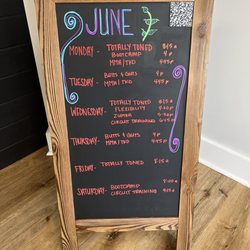 JUNE
MONDAY - TOTALLY TONED 8:15a
BOOTCAMP 4p
MMA/TKD 4:45p
TUESDAY - BUTTS & GUTS 4p
MMA/TKD 4:45p
WEDNESDAY - TOTALLY TONED 8:15a
FLEXIBILITY
ZUMBA
CIRCUIT TRAINING
THURSDAY - BUTTS & GUTS 4p
MMA/TKD 4:45p
FRIDAY - TOTALLY TONED 8:15a
SATURDAY - BOOTCAMP
CIRCUIT TRAINING